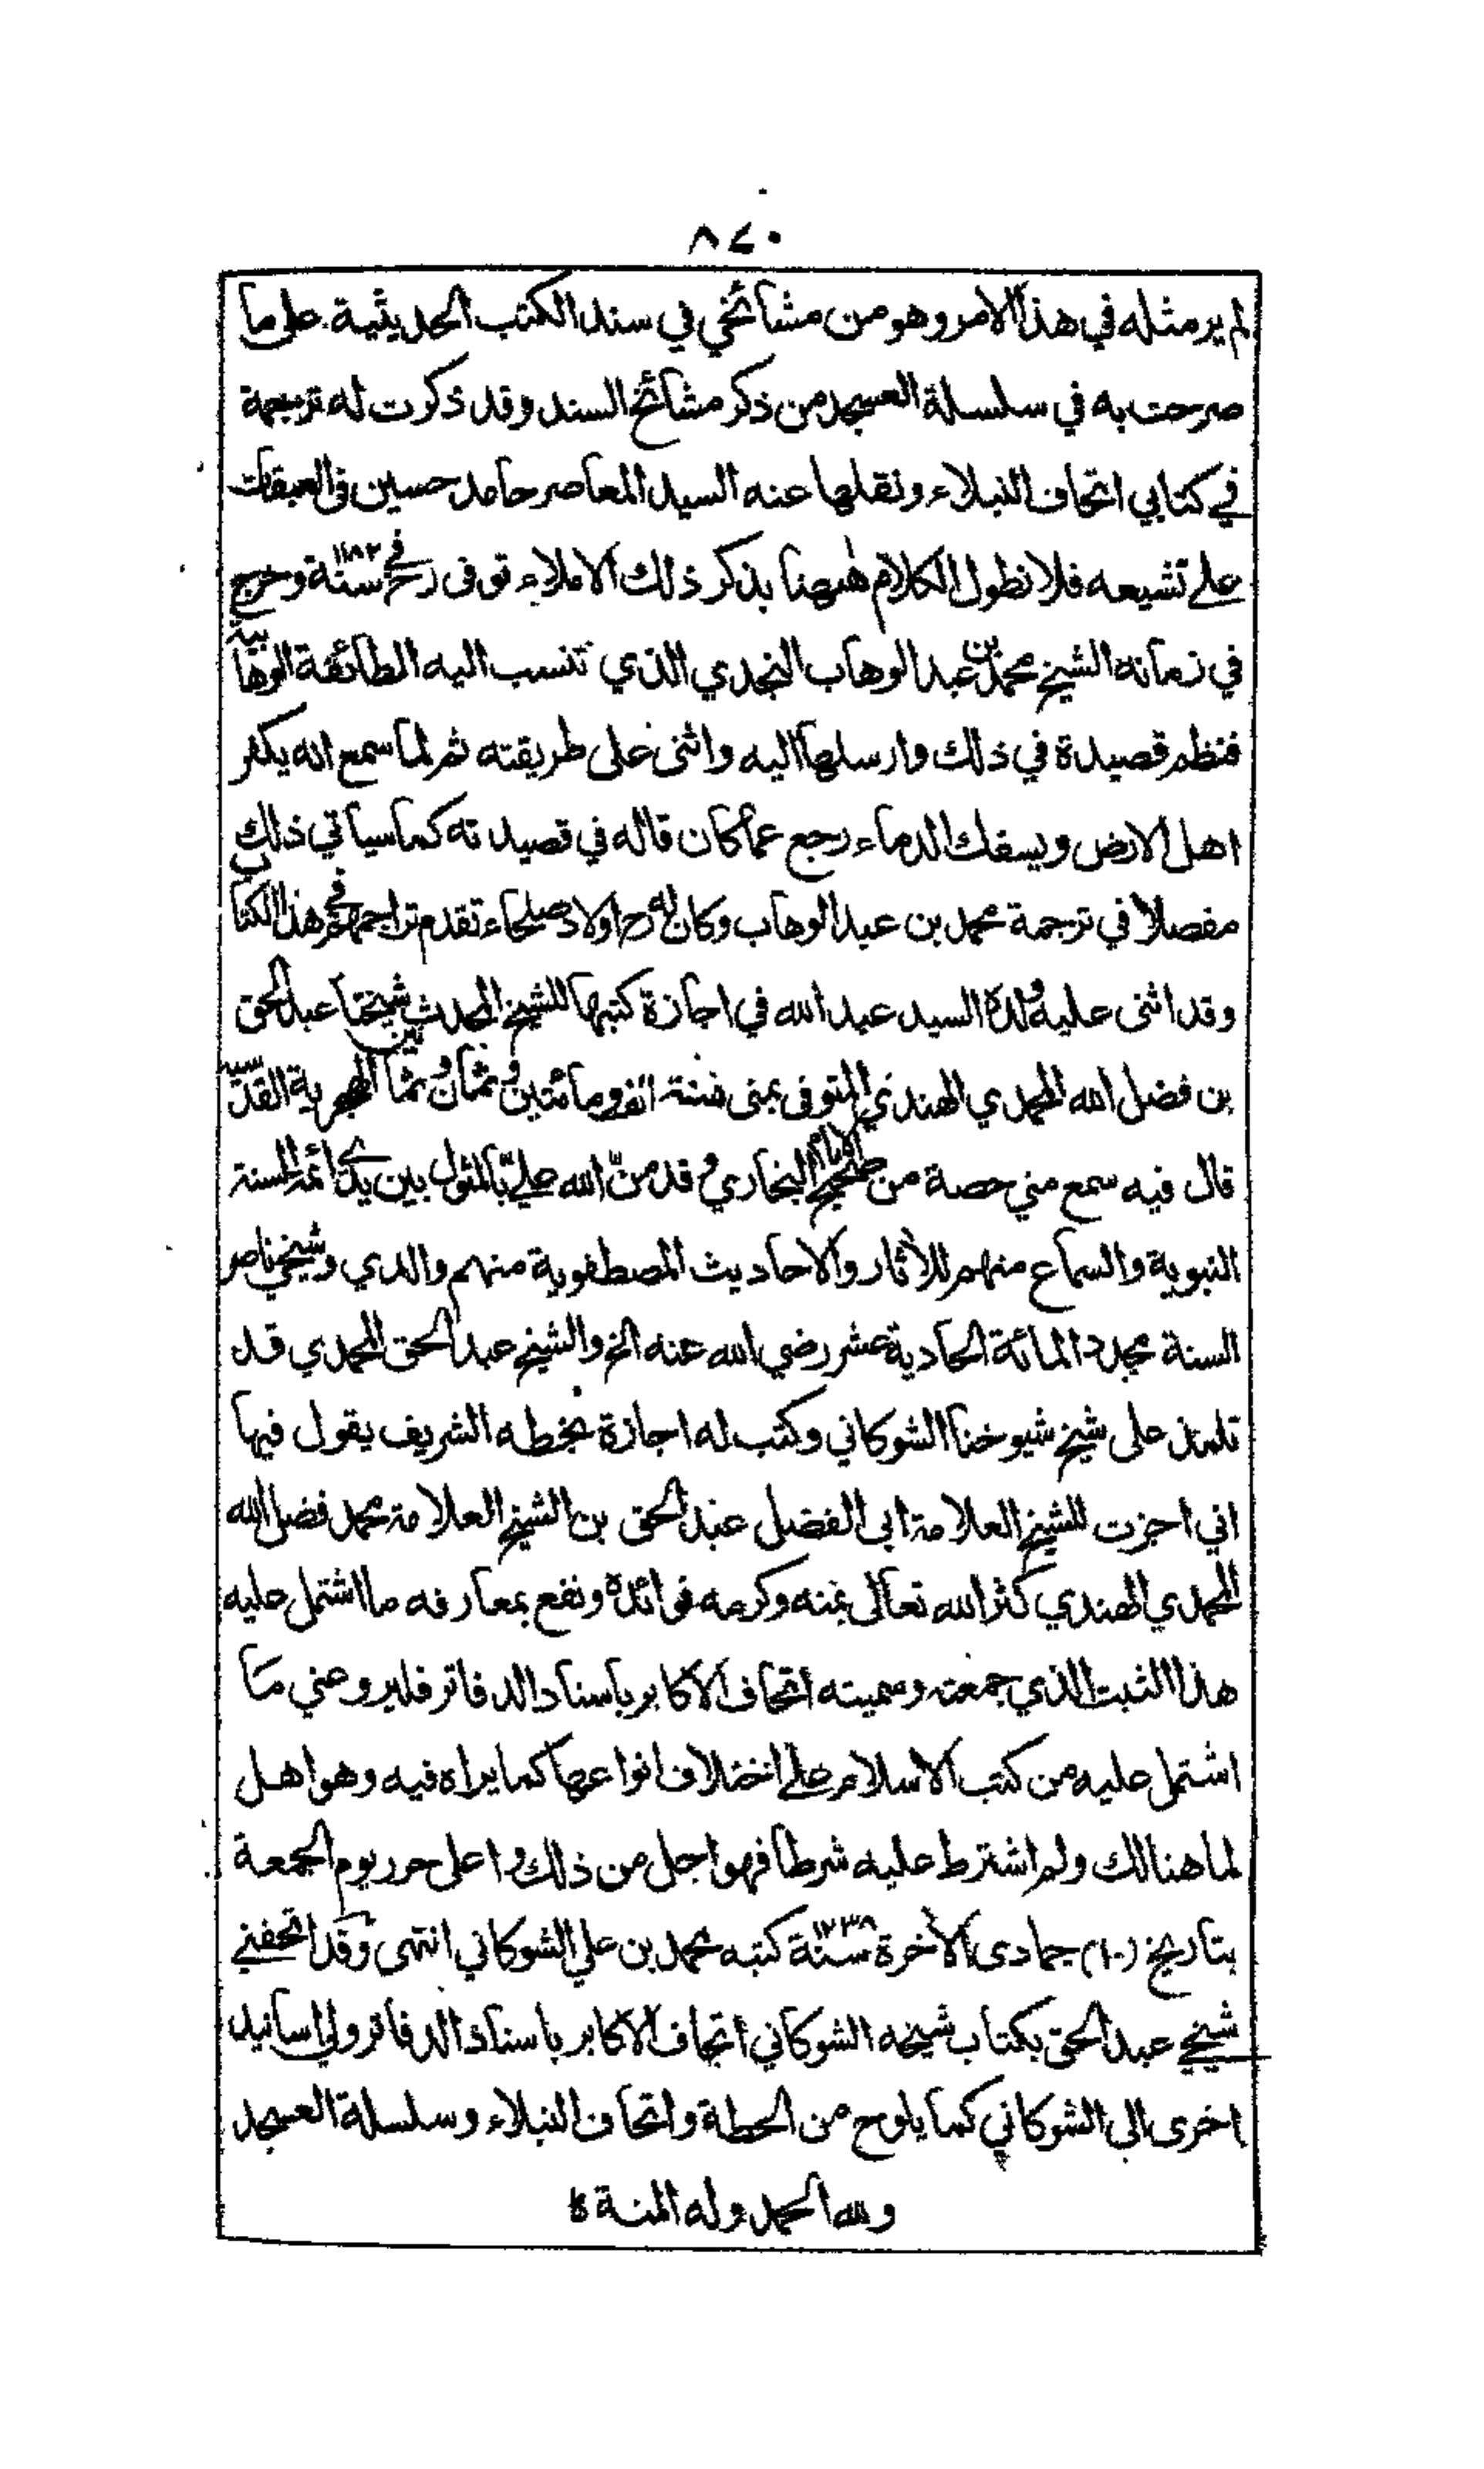 ٨٧٠
لم ير مثله في هذا الامر وهو من مشائخي في سند الكتب الحديثية على ما
صرحت به في سلسلة العسجد من ذكر مشائخ السند وقد ذكرت له ترجمة
في كتابي اتحاف النبلاء ونقلها عنه السيد المعاصر حامد حسين فى العبقات
على تشيعه فلا نطول الكلام ههنا بذكر ذلك الاملاء توفى رح في سنة ١١٨٢ وخرج
في زمانه الشيخ محمد بن عبد الوهاب النجدي الذي تنسب اليه الطائفة الوهابية
فنظم قصيدة في ذلك وارسلها اليه واثنى على طريقته ثم لما سمع انه يكفر
اهل الارض ويسفك الدماء رجع عما كان قاله في قصيدته كما سياتي ذلك
مفصلا في ترجمة محمد بن عبد الوهاب وكان له رح اولاد صلحاء تقدم تراجمهم في هذا الكتاب
وقد اثنى عليه ولده السيد عبد الله في اجازة كتبها للشيخ المحدث شيخنا عبد الحق
بن فضل الله المحمدي الهندي المتوفى بمنى سنة الف ومائتين وست وثمانين الهجرية القدسية
قال فيه سمع مني حصة من صحيح الامام البخاري وقد من الله علي بالمثول بين يدي ائمة السنة
النبوية والسماع منهم للآثار والاحاديث المصطفوية منهم والدي وشيخي ناصر
السنة مجدد المائة الحادية عشر رضي الله عنه الخ والشيخ عبد الحق المحمدي قد
تلمذ على شيخ شيوخنا الشوكاني وكتب له اجازة بخطه الشريف يقول فيها
اني اجزت للشيخ العلامة ابى الفضل عبد الحق بن الشيخ العلامة محمد فضل الله
المحمدي الهندي كثر الله تعالى بمنه وكرمه فوائده ونفع بمعارفه ما اشتمل عليه
هذا الثبت الذي جمعته وسميته اتحاف الاكابر باسناد الدفاتر فليرو عني ما
اشتمل عليه من كتب الاسلام على اختلاف انواعها كما يراه فيه وهو اهل
لما هنالك ولم اشترط عليه شرطا فهو اجل من ذلك واعلى حرر يوم الجمعة
بتاريخ (١٠) جمادى الآخرة سنة ١٢٣٨ كتبه محمد بن علي الشوكاني انتهى وقد اتحفني
شيخي عبد الحق بكتاب شيخه الشوكاني اتحاف الاكابر باسناد الدفاتر ولي اسانيد
اخرى الى الشوكاني كما يلوح من الحطة واتحاف النبلاء وسلسلة العسجد
ولله الحمد وله المنة ه